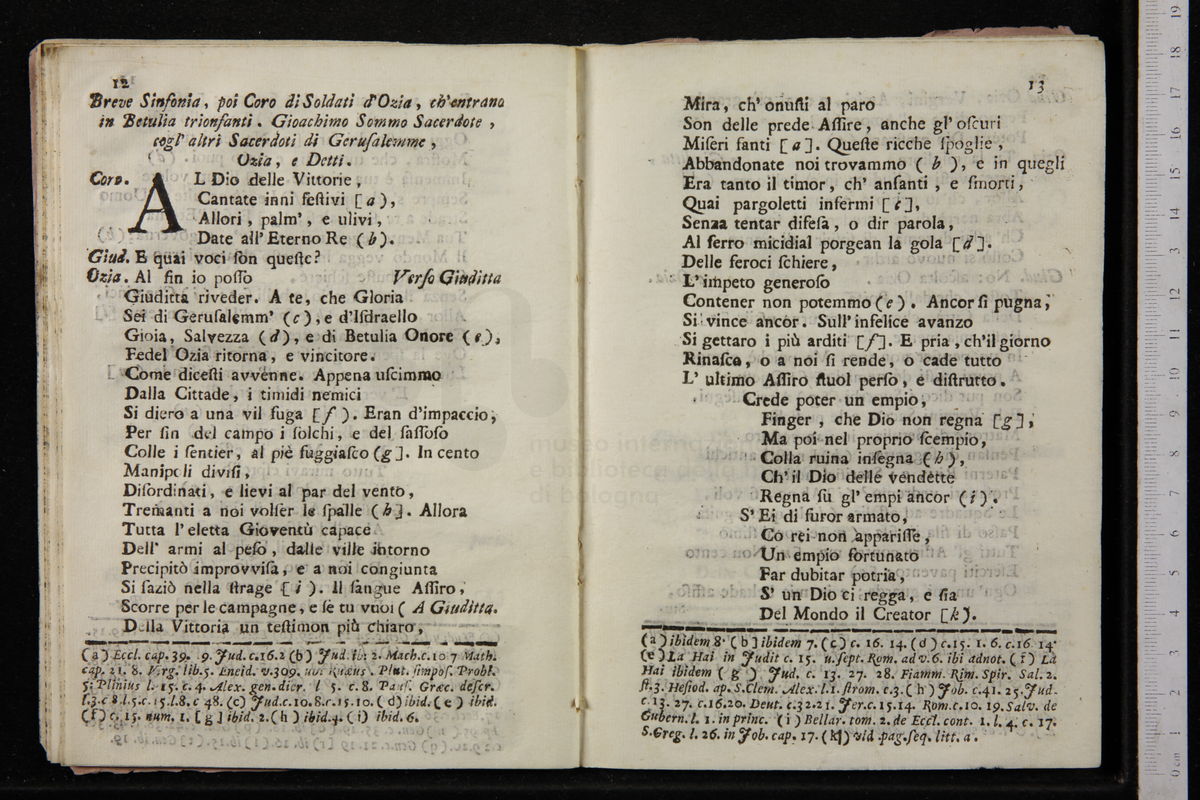 12
Breve Sinfonia, poi Coro di Soldati d'Ozia, ch'entrano
in Betulia trionfanti. Gioachimo Sommo Sacerdote,
cogl' altri Sacerdoti di Geruſalemme,
Ozia, e Detti.
Coro. AL Dio delle Vittorie,
Cantate inni feſtivi [a),
Allori, palm', e ulivi,
Date all' Eterno Re (b).
Giud. E quai voci ſon queſte?
Ozia. Al fin io poſſo Verſo Giuditta
Giuditta riveder. A te, che Gloria
Sei di Geruſalemm' (c), e d'Iſdraello
Gioia, Salvezza (d), e di Betulia Onore (e),
Fedel Ozia ritorna, e vincitore.
Come diceſti avvenne. Appena uſcimmo
Dalla Cittade, i timidi nemici
Si diero a una vil fuga [f). Eran d'impaccio,
Per fin del campo i ſolchi, e del ſaſſoſo
Colle i ſentier, al piè fuggiaſco (g]. In cento
Manipoli diviſi,
Diſordinati, e lievi al par del vento,
Tremanti a noi volſer le ſpalle (h]. Allora
Tutta l'eletta Gioventù capace
Dell' armi al peſo, dalle ville intorno
Precipitò improvviſa, e a noi congiunta
Si ſaziò nella ſtrage [i). Il ſangue Aſſiro,
Scorre per le campagne, e ſe tu vuoi (A Giuditta.
Della Vittoria un teſtimon più chiaro,
(a) Eccl. cap. 39. 19. Jud. c.16.2 (b) Jud. ibi 2. Mach. c.10 7 Math.
cap. 21. 8. Virg. lib.5. Eneid. v.309. ubi Rueus. Plut. ſimpoſ. Probl.
5. Plinius l. 15. c. 4. Alex. gen. dier. l 5. c. 8. Pauſ. Græc. deſcr.
l.3.c 8 l.5.c.15.l.8.c 48. (c) Jud.c.10.8.c.15.10. (d) ibid. (e) ibid.
(f) c. 15. num. 1. [g] ibid. 2. (h) ibid. 4. (i) ibid. 6.
13
Mira, ch' onuſti al paro
Son delle prede Aſſire, anche gl' oſcuri
Miſeri fanti [a]. Queſte ricche ſpoglie,
Abbandonate noi trovammo (b), e in quegli
Era tanto il timor, ch' anſanti, e ſmorti,
Quai pargoletti infermi [c],
Senza tentar difeſa, o dir parola,
Al ferro micidial porgean la gola [d].
Delle feroci ſchiere,
L'impeto generoſo
Contener non potemmo (e). Ancor ſi pugna,
Si vince ancor. Sull' infelice avanzo
Si gettaro i più arditi [f]. E pria, ch'il giorno
Rinaſca, o a noi ſi rende, o cade tutto
L' ultimo Aſſiro ſtuol perſo, e diſtrutto.
Crede poter un empio,
Finger, che Dio non regna [g],
Ma poi nel proprio ſcempio,
Colla ruina inſegna (h),
Ch' il Dio delle vendette
Regna ſu gl' empi ancor (i).
S' Ei di furor armato,
Co rei non appariſſe,
Un empio fortunato
Far dubitar potria,
S' un Dio ci regga, e ſia
Del Mondo il Creator [k).
(a) ibidem 8. (b] ibidem 7. (c) c. 16. 14. (d) c.15. 1. 6. c.16 14.
(e) La Hai in Judit c. 15. u.ſept. Rom. ad v. 6. ibi adnot. (f) La
Hai ibidem (g) Jud. c. 13. 27. 28. Fiamm. Rim. Spir. Sal. 2.
ſt.3. Heſiod. ap. S. Clem. Alex. l.1. ſtrom. c.3. (h) Job. c.41. 25. Jud.
c. 13. 27. c.16.20. Deut. c.32.21. Jer. c.15.14. Rom. c.10. 19. Salv. de
Gubern. l. 1. in princ. (i) Bellar. tom. 2. de Eccl. cont. 1. l. 4. c. 17.
S. Greg. l. 26. in Job. cap. 17. (k]) vid. pag. ſeq. litt. a.